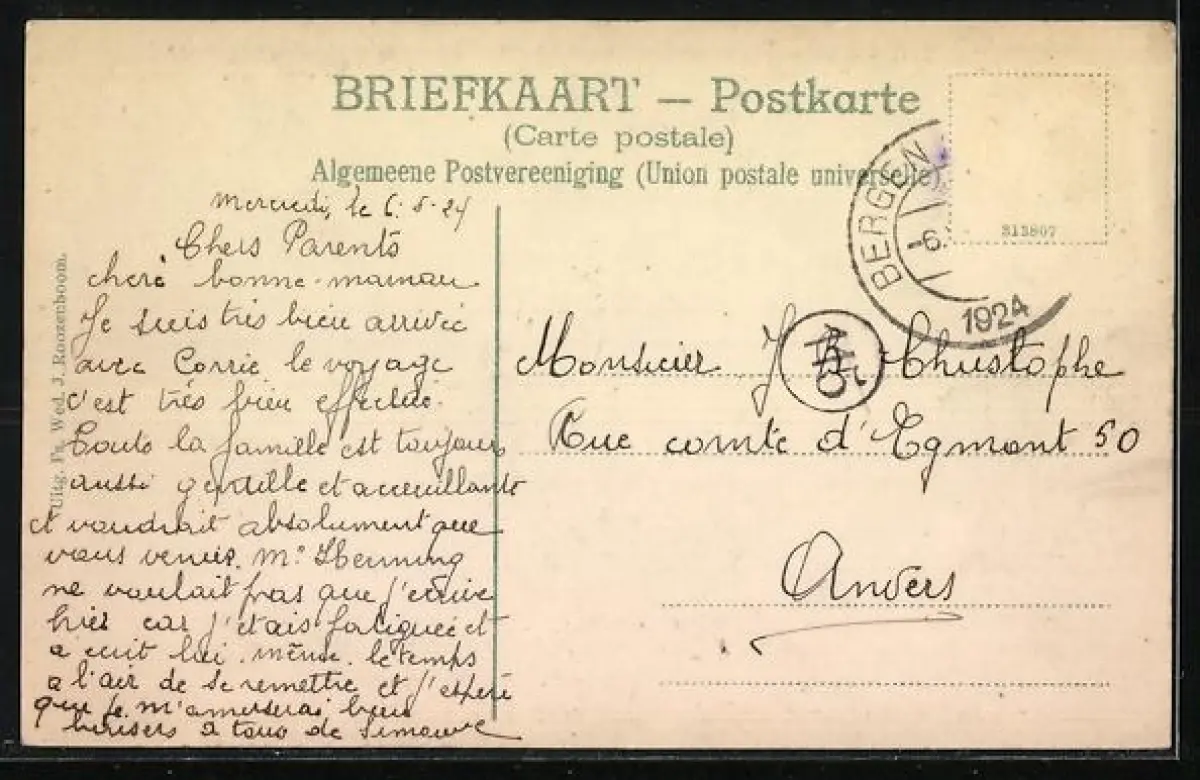 BRIEFKAART — Postkarte
(Carte postale)
Algemeene Postvereeniging (Union postale universelle)
Uitg. Fa. Wed. J. Roozenboom.
313807
BERGEN
-6.
1924
Mercredi, le 6-8-24
Chers Parents
chere bonne-maman
Je suis très bien arrivée
avec Corrie le voyage
c'est très bien effectué.
Toute la famille est toujours
aussi gentille et accueillante
et voudrait absolument que
vous veniez. Mr Henning
ne voulait pas que j'écrive
hier car j'étais fatiguée et
a écrit lui-même. le temps
a l'air de se remettre et j'espère
que je m'amuserai bien
baisers à tous de Simonne
Monsieur J Christophe
Rue comte d'Egmont 50
Anvers